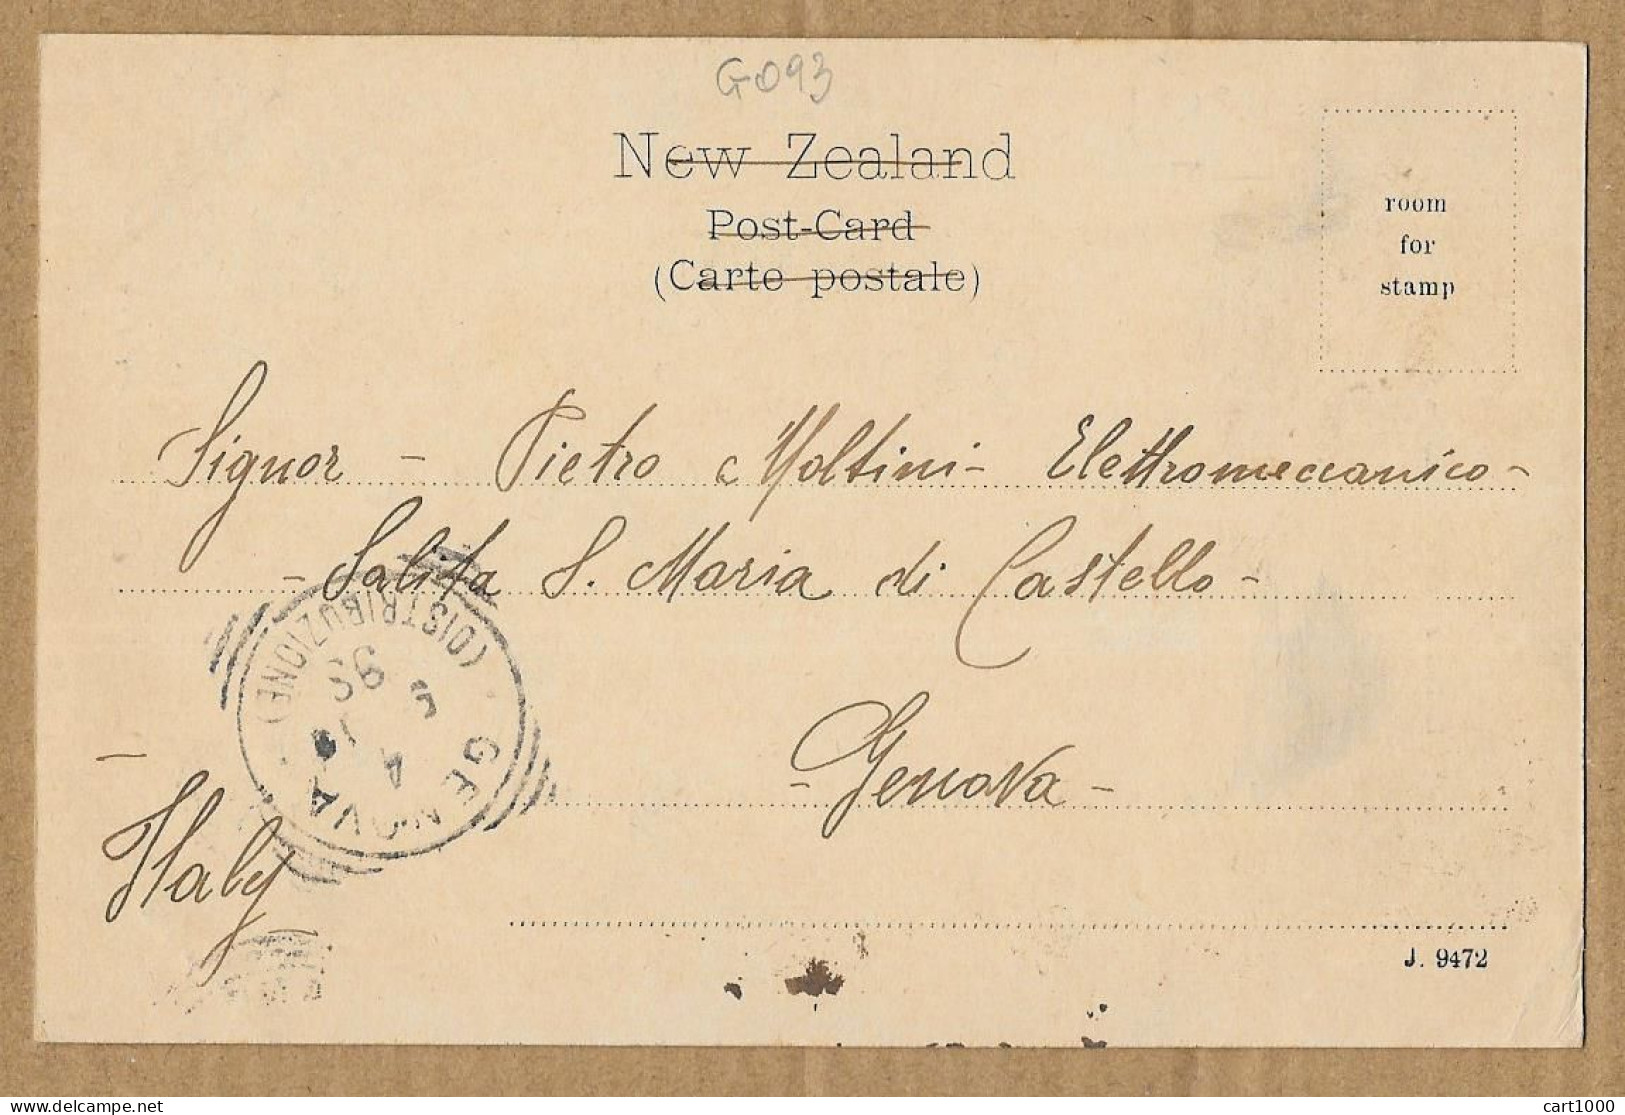 G093
New Zealand
Post-Card
(Carte postale)
room
for
stamp
Signor - Pietro Moltini - Elettromeccanico -
- Salita S. Maria di Castello -
- Genova -
Italy
GENOVA
(DISTRIBUZIONE)
J. 9472
delcampe.net
cart1000